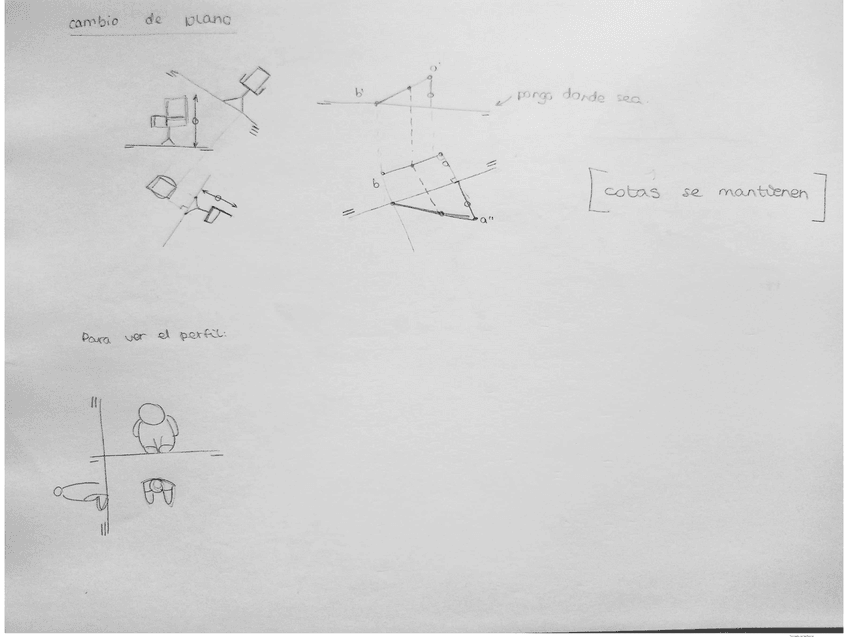 cambio de plano
a'
b'
pongo donde sea.
a
b
a"
[cotas se mantienen]
Para ver el perfil: